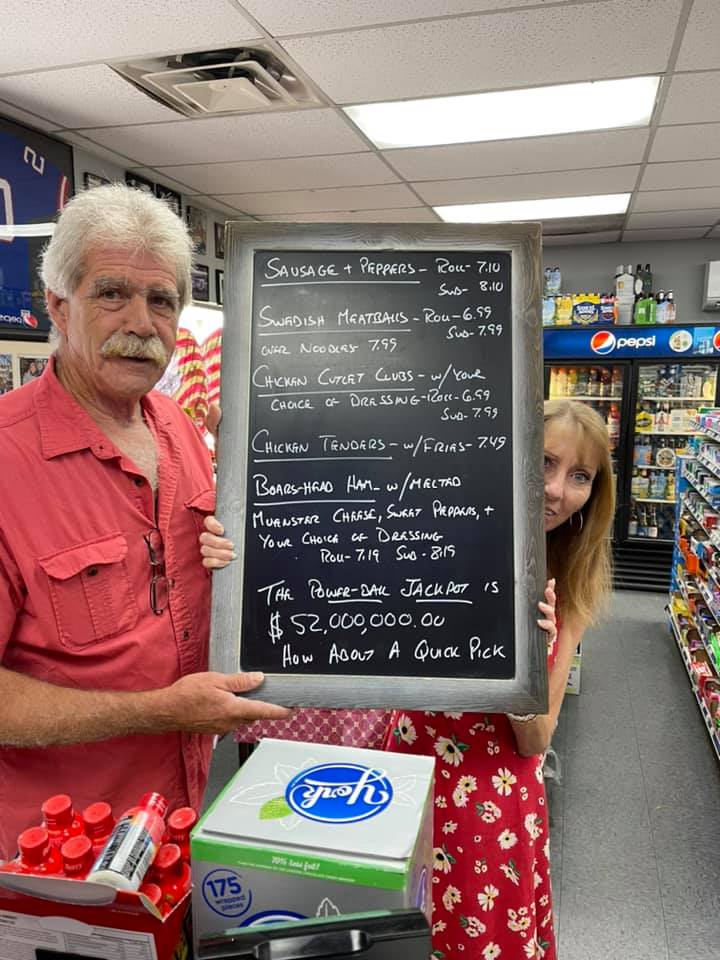 SAUSAGE + PEPPERS - ROLL- 7.10
SUB- 8.10
SWEDISH MEATBALLS - ROLL - 6.99
SUB- 7.99
OVER NOODLES 7.99
CHICKEN CUTLET CLUBS - W/YOUR
CHOICE OF DRESSING-ROLL-6.99
SUB- 7.99
CHICKEN TENDERS - W/FRIES - 7.49
BOARS-HEAD HAM - W/MELTED
MUENSTER CHEESE, SWEET PEPPERS, +
YOUR CHOICE OF DRESSING
ROLL-7.19 SUB-8.19
THE POWER-BALL JACKPOT IS
$ 52,000,000.00
HOW ABOUT A QUICK PICK
pepsi
2
York
70% less fat!
175
wrapped
pieces